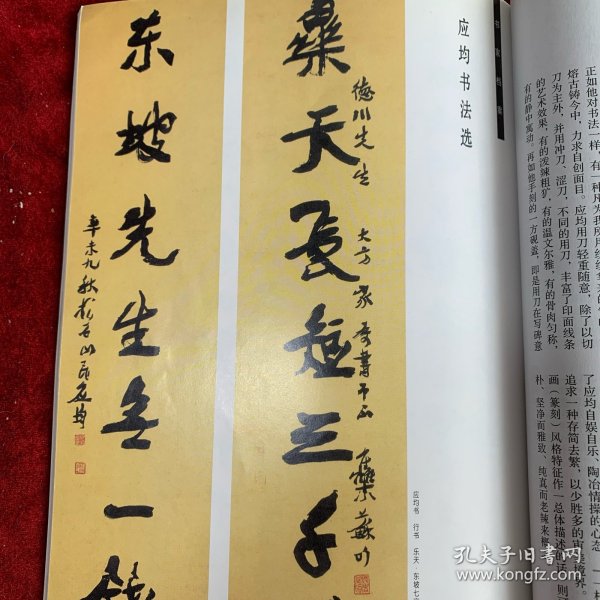 正如他对书法一样，有一种
熔古铸今中，力求自创面目。应均用刀轻重随意，除了以切
刀为主外，并用冲刀、涩刀，不同的用刀，丰富了印面线条
的艺术效果，有的泼辣粗犷，有的温文尔雅，有的骨肉匀称，
有的静中寓动，再如他手刻的一方砚盖，即是用刀在写碑意
了应均自娱自乐、陶冶情操的心态。
追求一种存简去繁，以少胜多的审
画（篆刻）风格特征作一总体描述
朴、坚净而雅致、纯真而老辣来
书家档案
应均书法选
应均书 行书 乐天·东坡七
德川先生 大方家
樂天長短三千
东坡先生無一
辛未九秋 应均
孔夫子旧书网